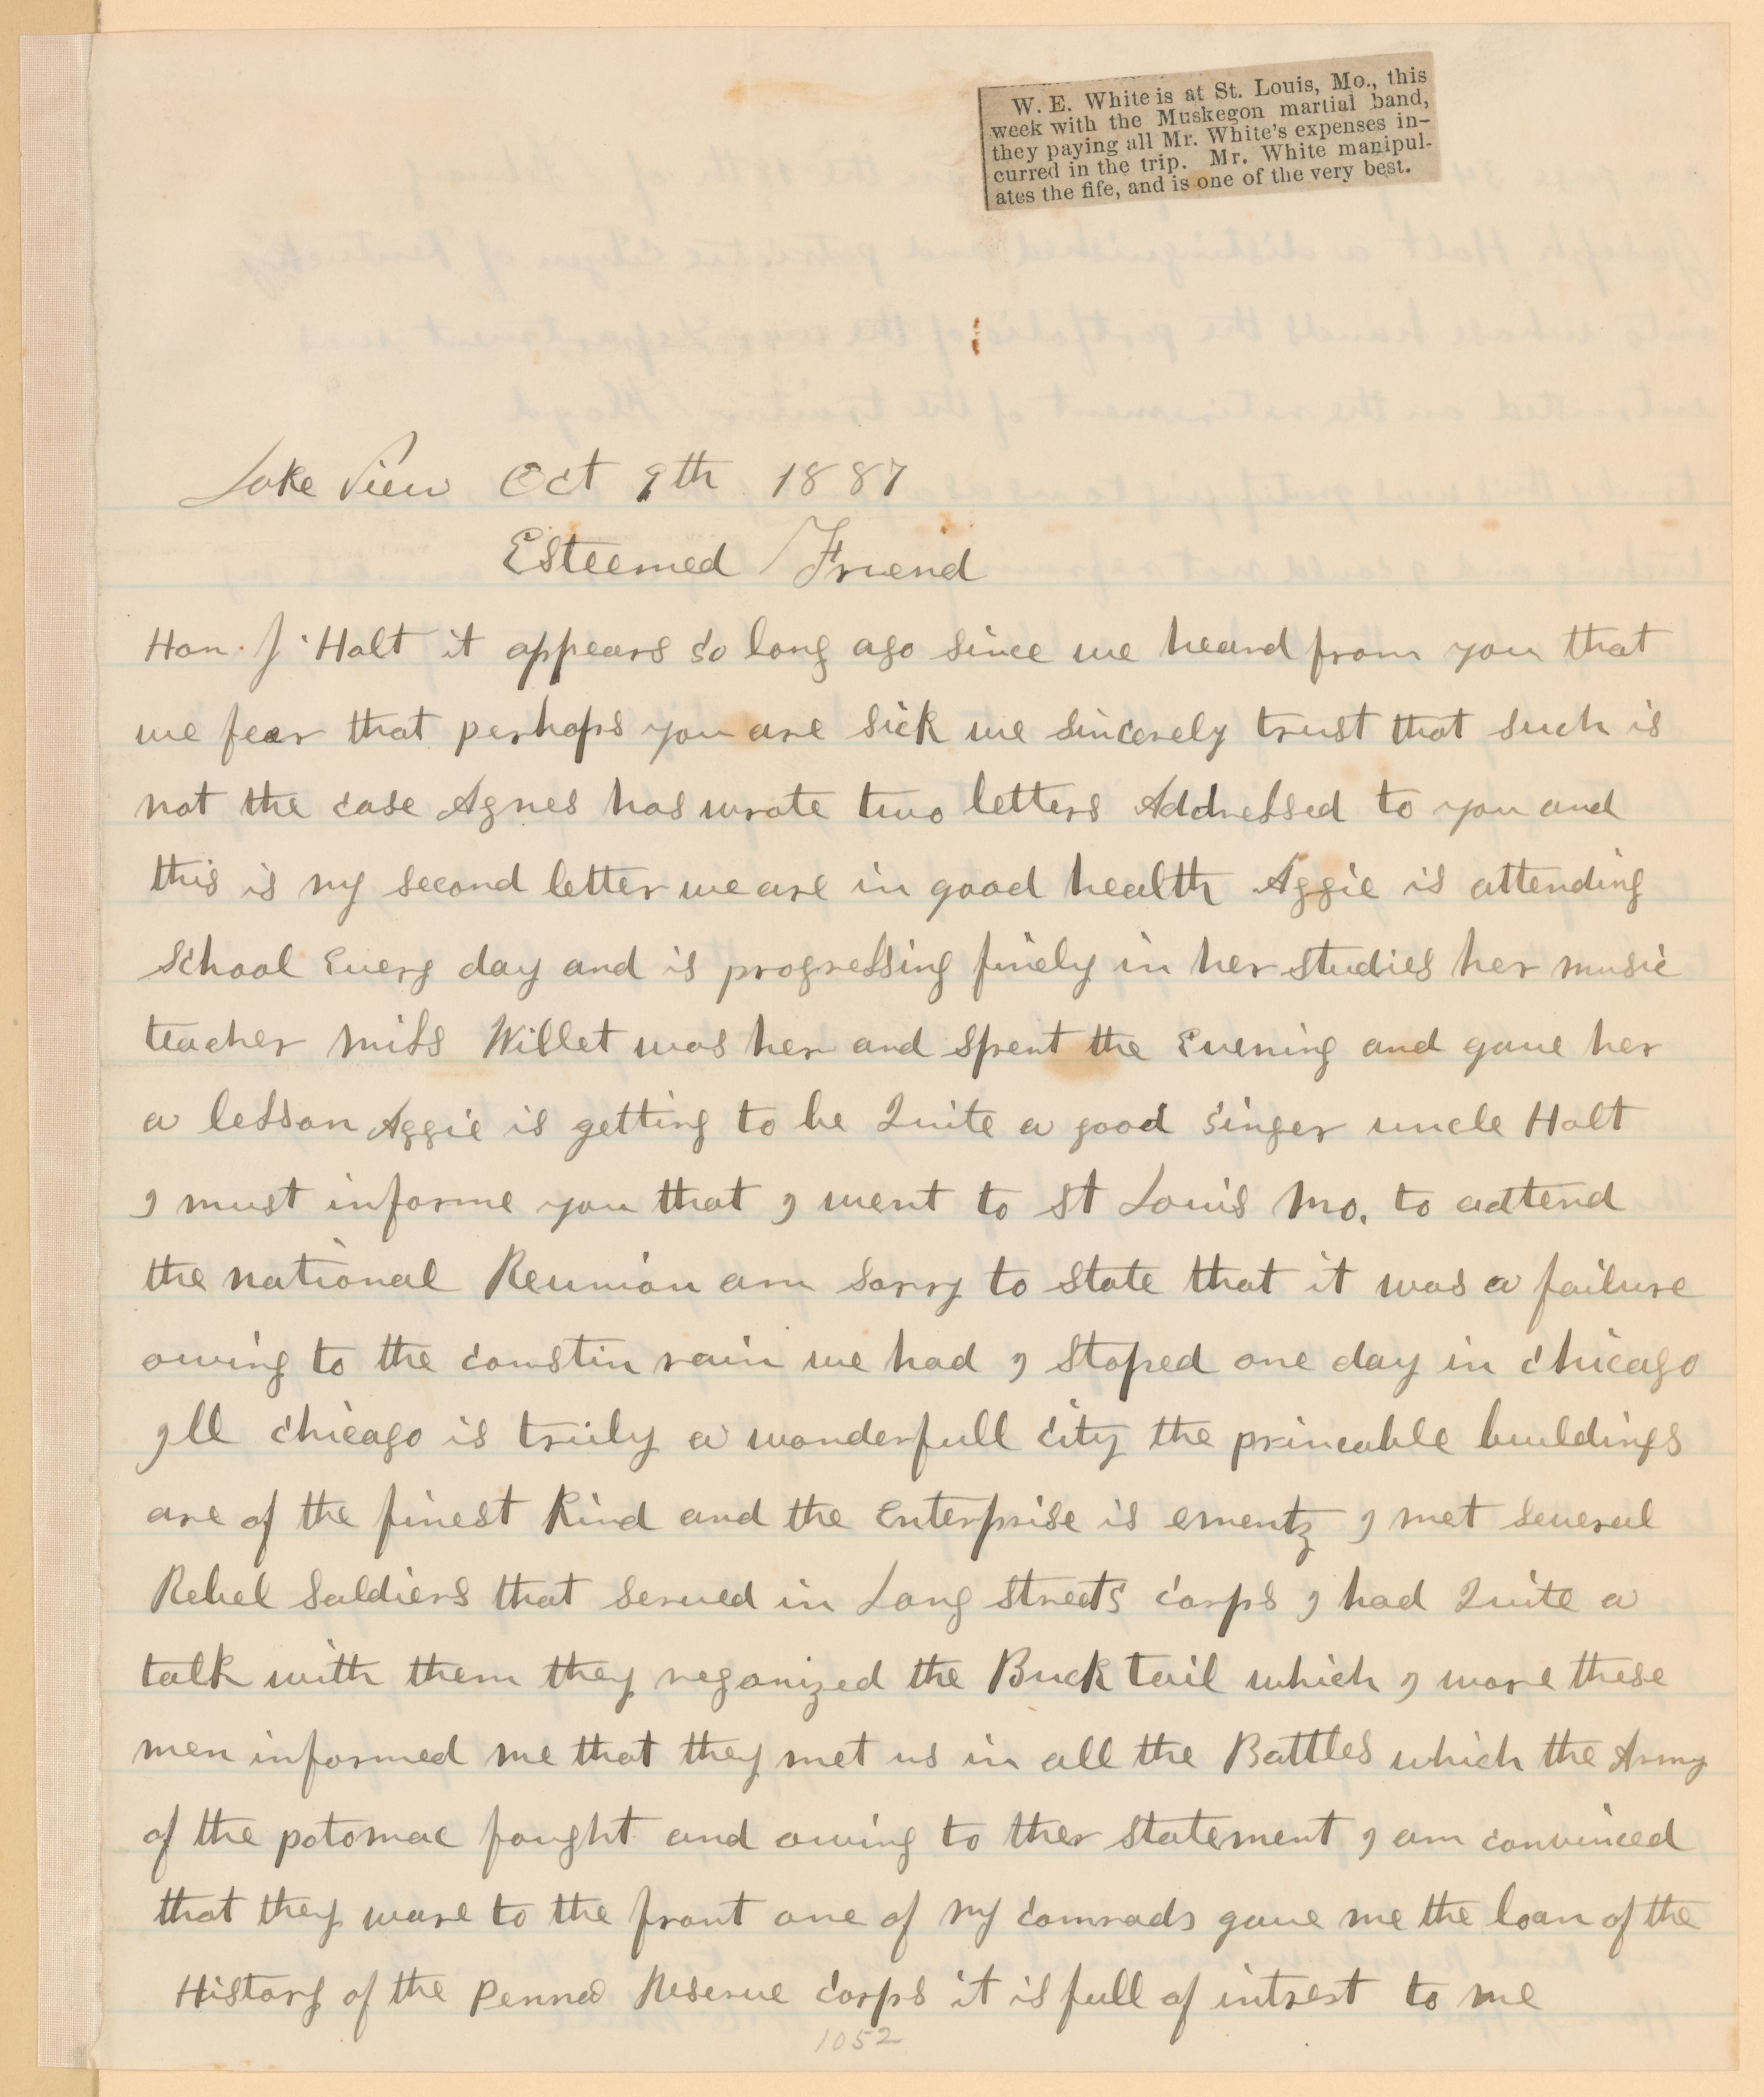 W. E. White is at St. Louis, Mo., this
week with the Muskegon martial band,
they paying all Mr. White's expenses in-
curred in the trip. Mr. White manipul-
ates the fife, and is one of the very best.
Lake View Oct 9th 1887
Esteemed Friend
Hon. J. Holt it appears so long ago since we heard from you that
we fear that perhaps you are sick we sincerely trust that such is
not the case Agnes has wrote two letters Addressed to you and
this is my second letter we are in good health Aggie is attending
school Every day and is progressing finely in her studies her music
teacher miss Willet was her and spent the Evening and gave her
a lesson Aggie is getting to be Quite a good singer uncle Holt
I must informe you that I went to St Louis Mo. to adtend
the national Reunion am sorry to state that it was a failure
owing to the constin rain we had I stoped one day in chicago
Ill chicago is truly a wonderfull city the princable buildings
are of the finest Kind and the Enterprise is ementz I met several
Rebel Soldiers that served in Long streets corps I had Quite a
talk with them they reganized the Buck tail which I wore these
men informed me that they met us in all the Battles which the Army
of the potomac fought and owing to ther statement I am convinced
that they ware to the front one of my comrads gave me the loan of the
History of the Penna Reserve Corps it is full of intrest to me
1052